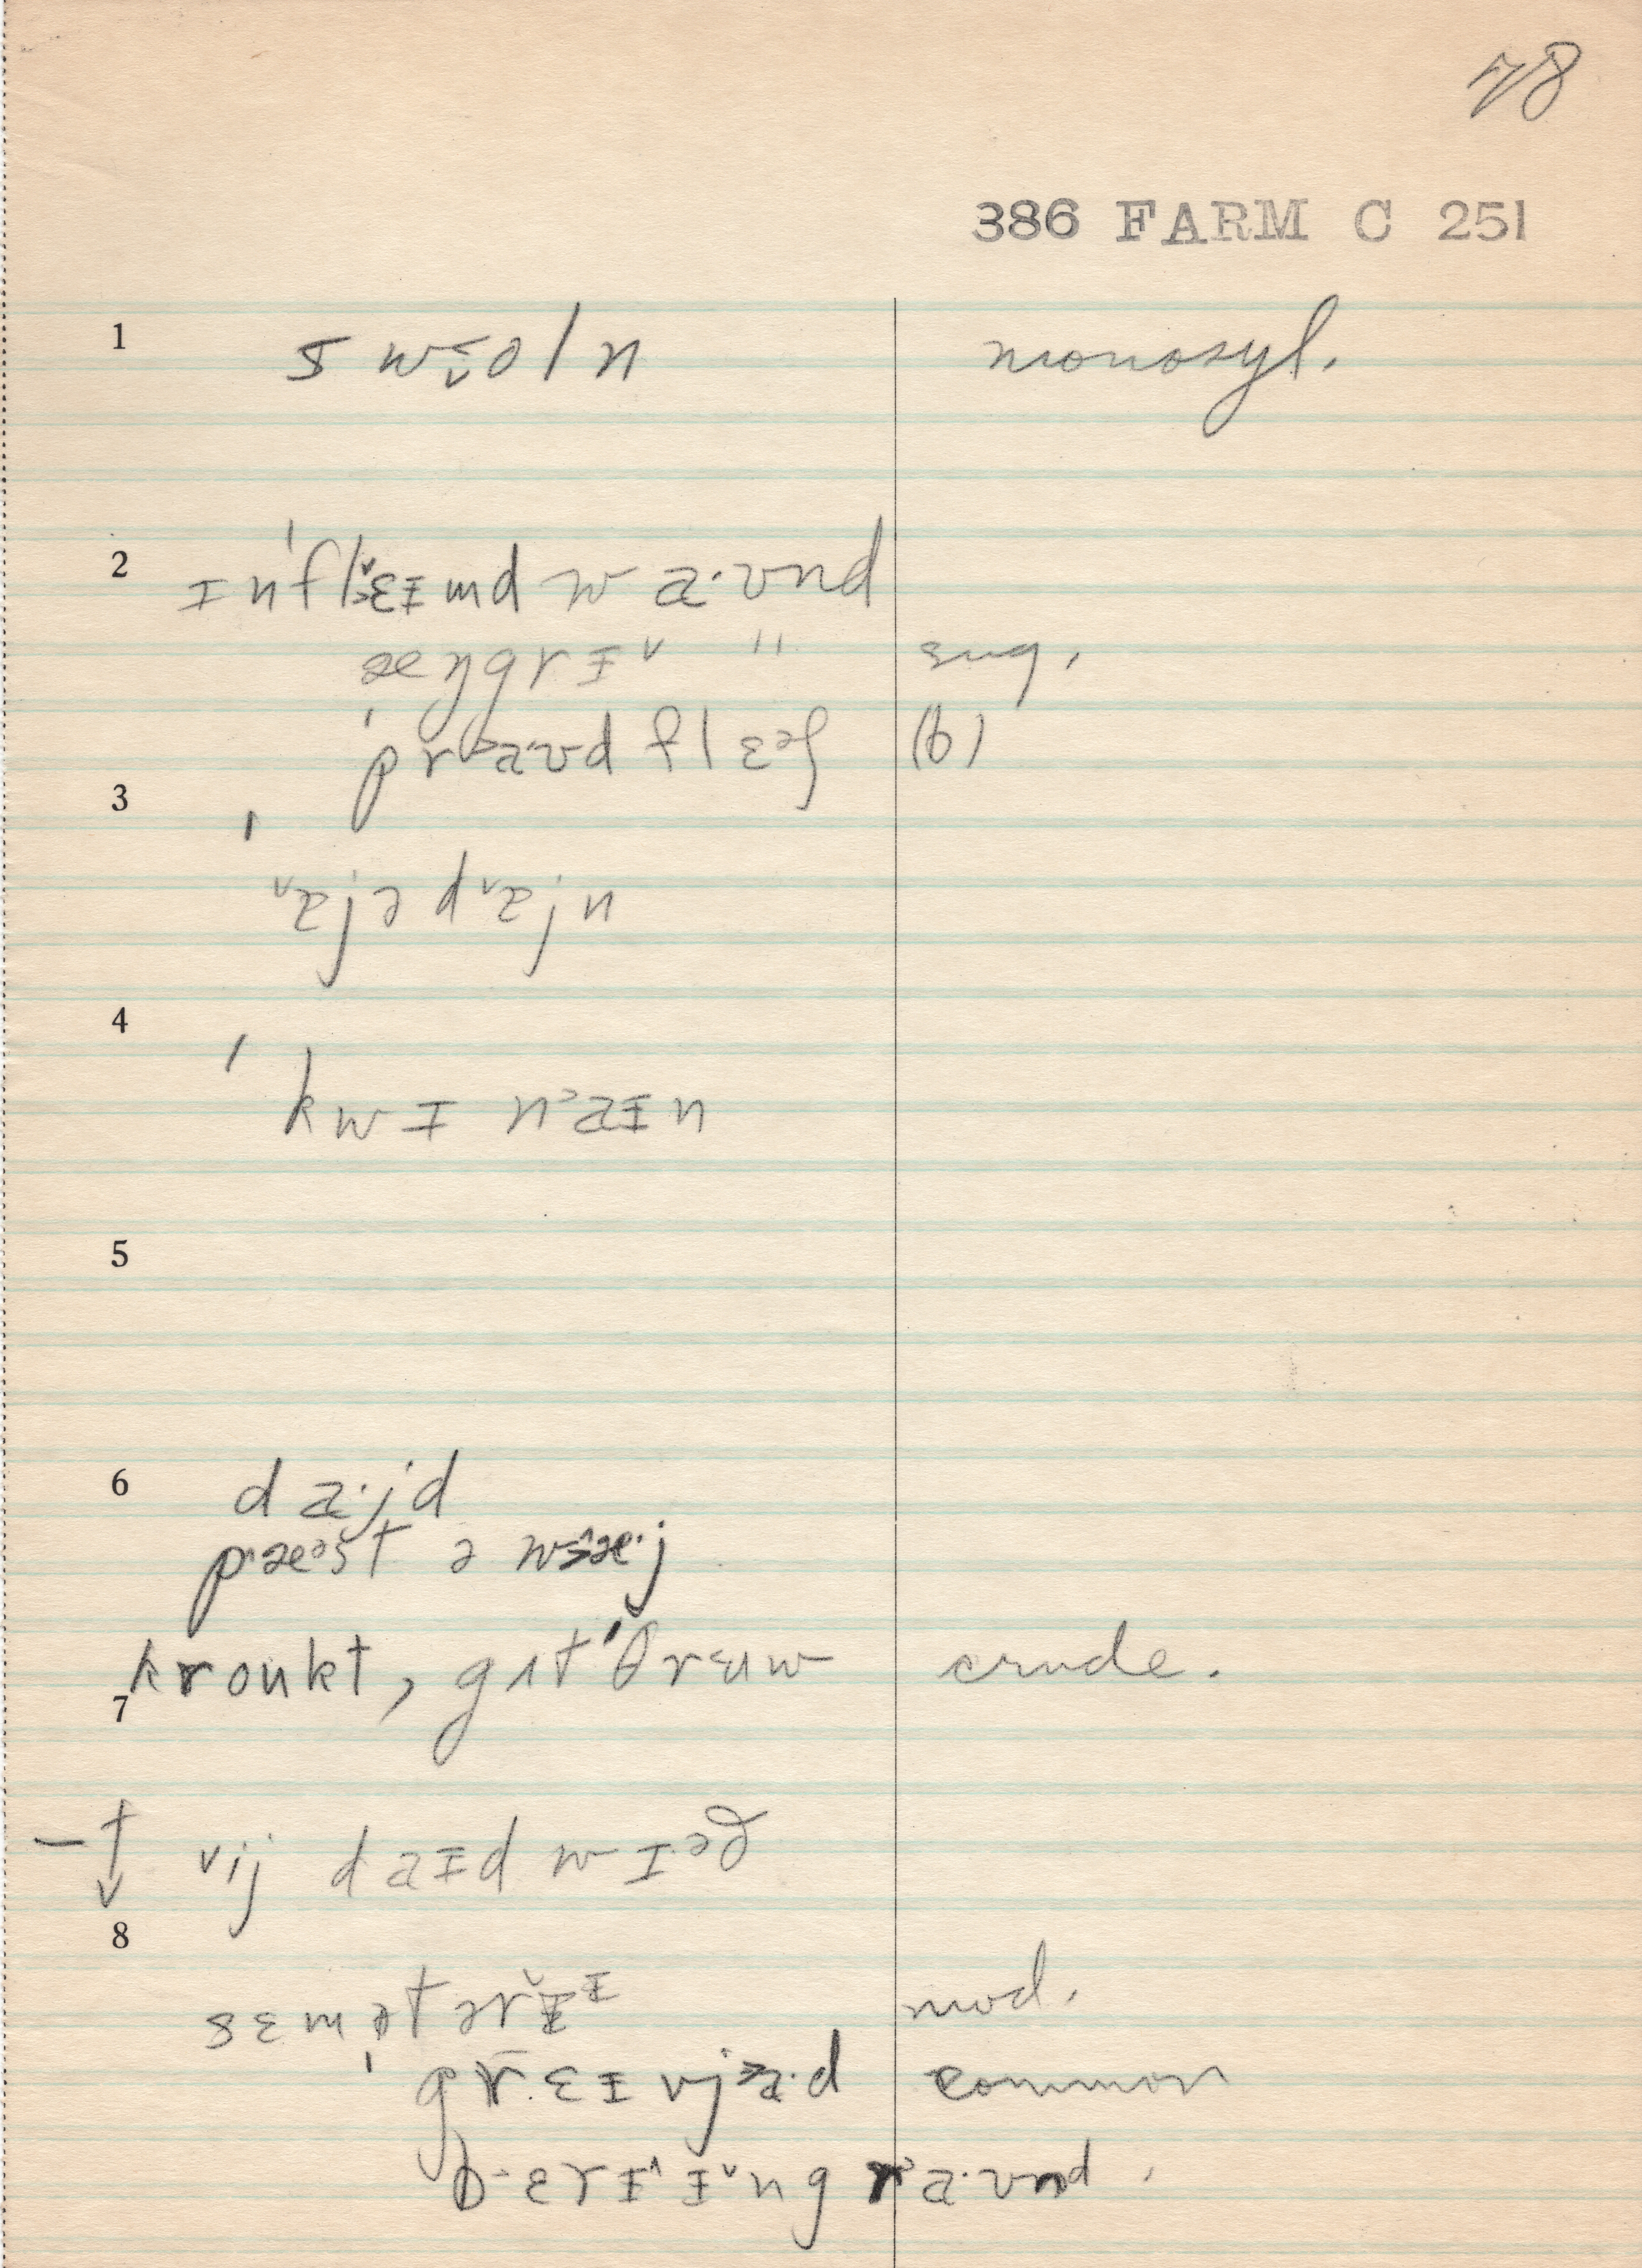 78
386 FARM C 251
1 monosyl.
2 ɪnˈflɛɪmd w a·ʊnd
æŋgrɪ " sug.
ˈpraʊd flɛəʃ (b)
3
ˈajədajn
4
ˈkwɪnaɪn
5
6 da·jd
pæəst ə wæ·j
kroukt, gɪt ˈθrɛuw crude.
7
vij daɪd wɪəð
8
sɛmətɛrɪ mod.
ˈgrɛɪvja·d common
bɛrɪɪngra·ʊnd